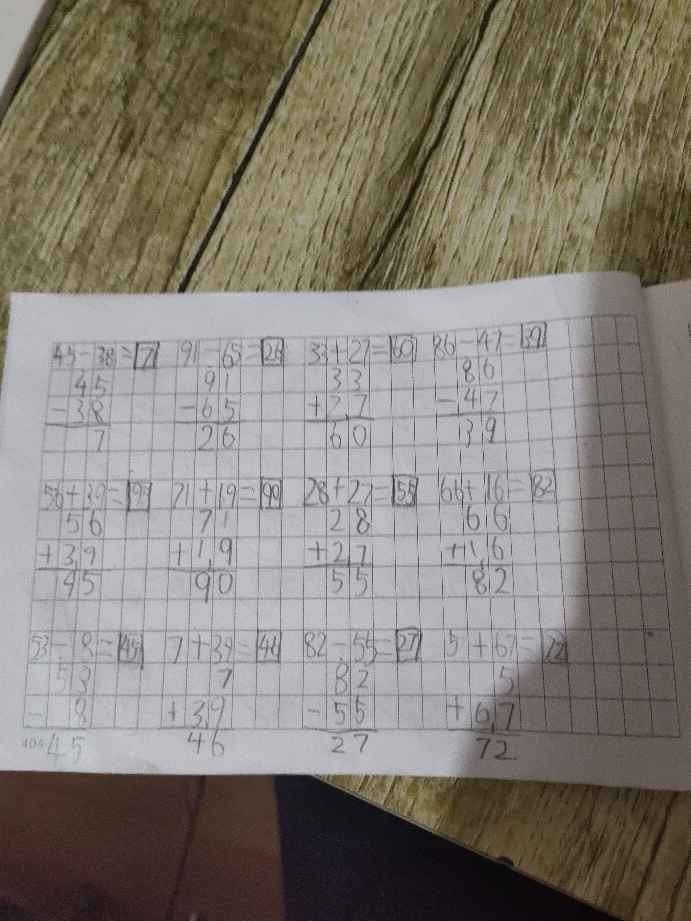 45-38=7 91-65=26 33+27=60 86-47=39
45 91 33 86
-38 -65 +27 -47
7 26 60 39
56+39=95 71+19=90 28+27=55 66+16=82
56 71 28 66
+39 +19 +27 +16
95 90 55 82
53-8=45 7+39=46 82-55=27 5+67=72
53 7 82 5
-8 +39 -55 +67
45 46 27 72